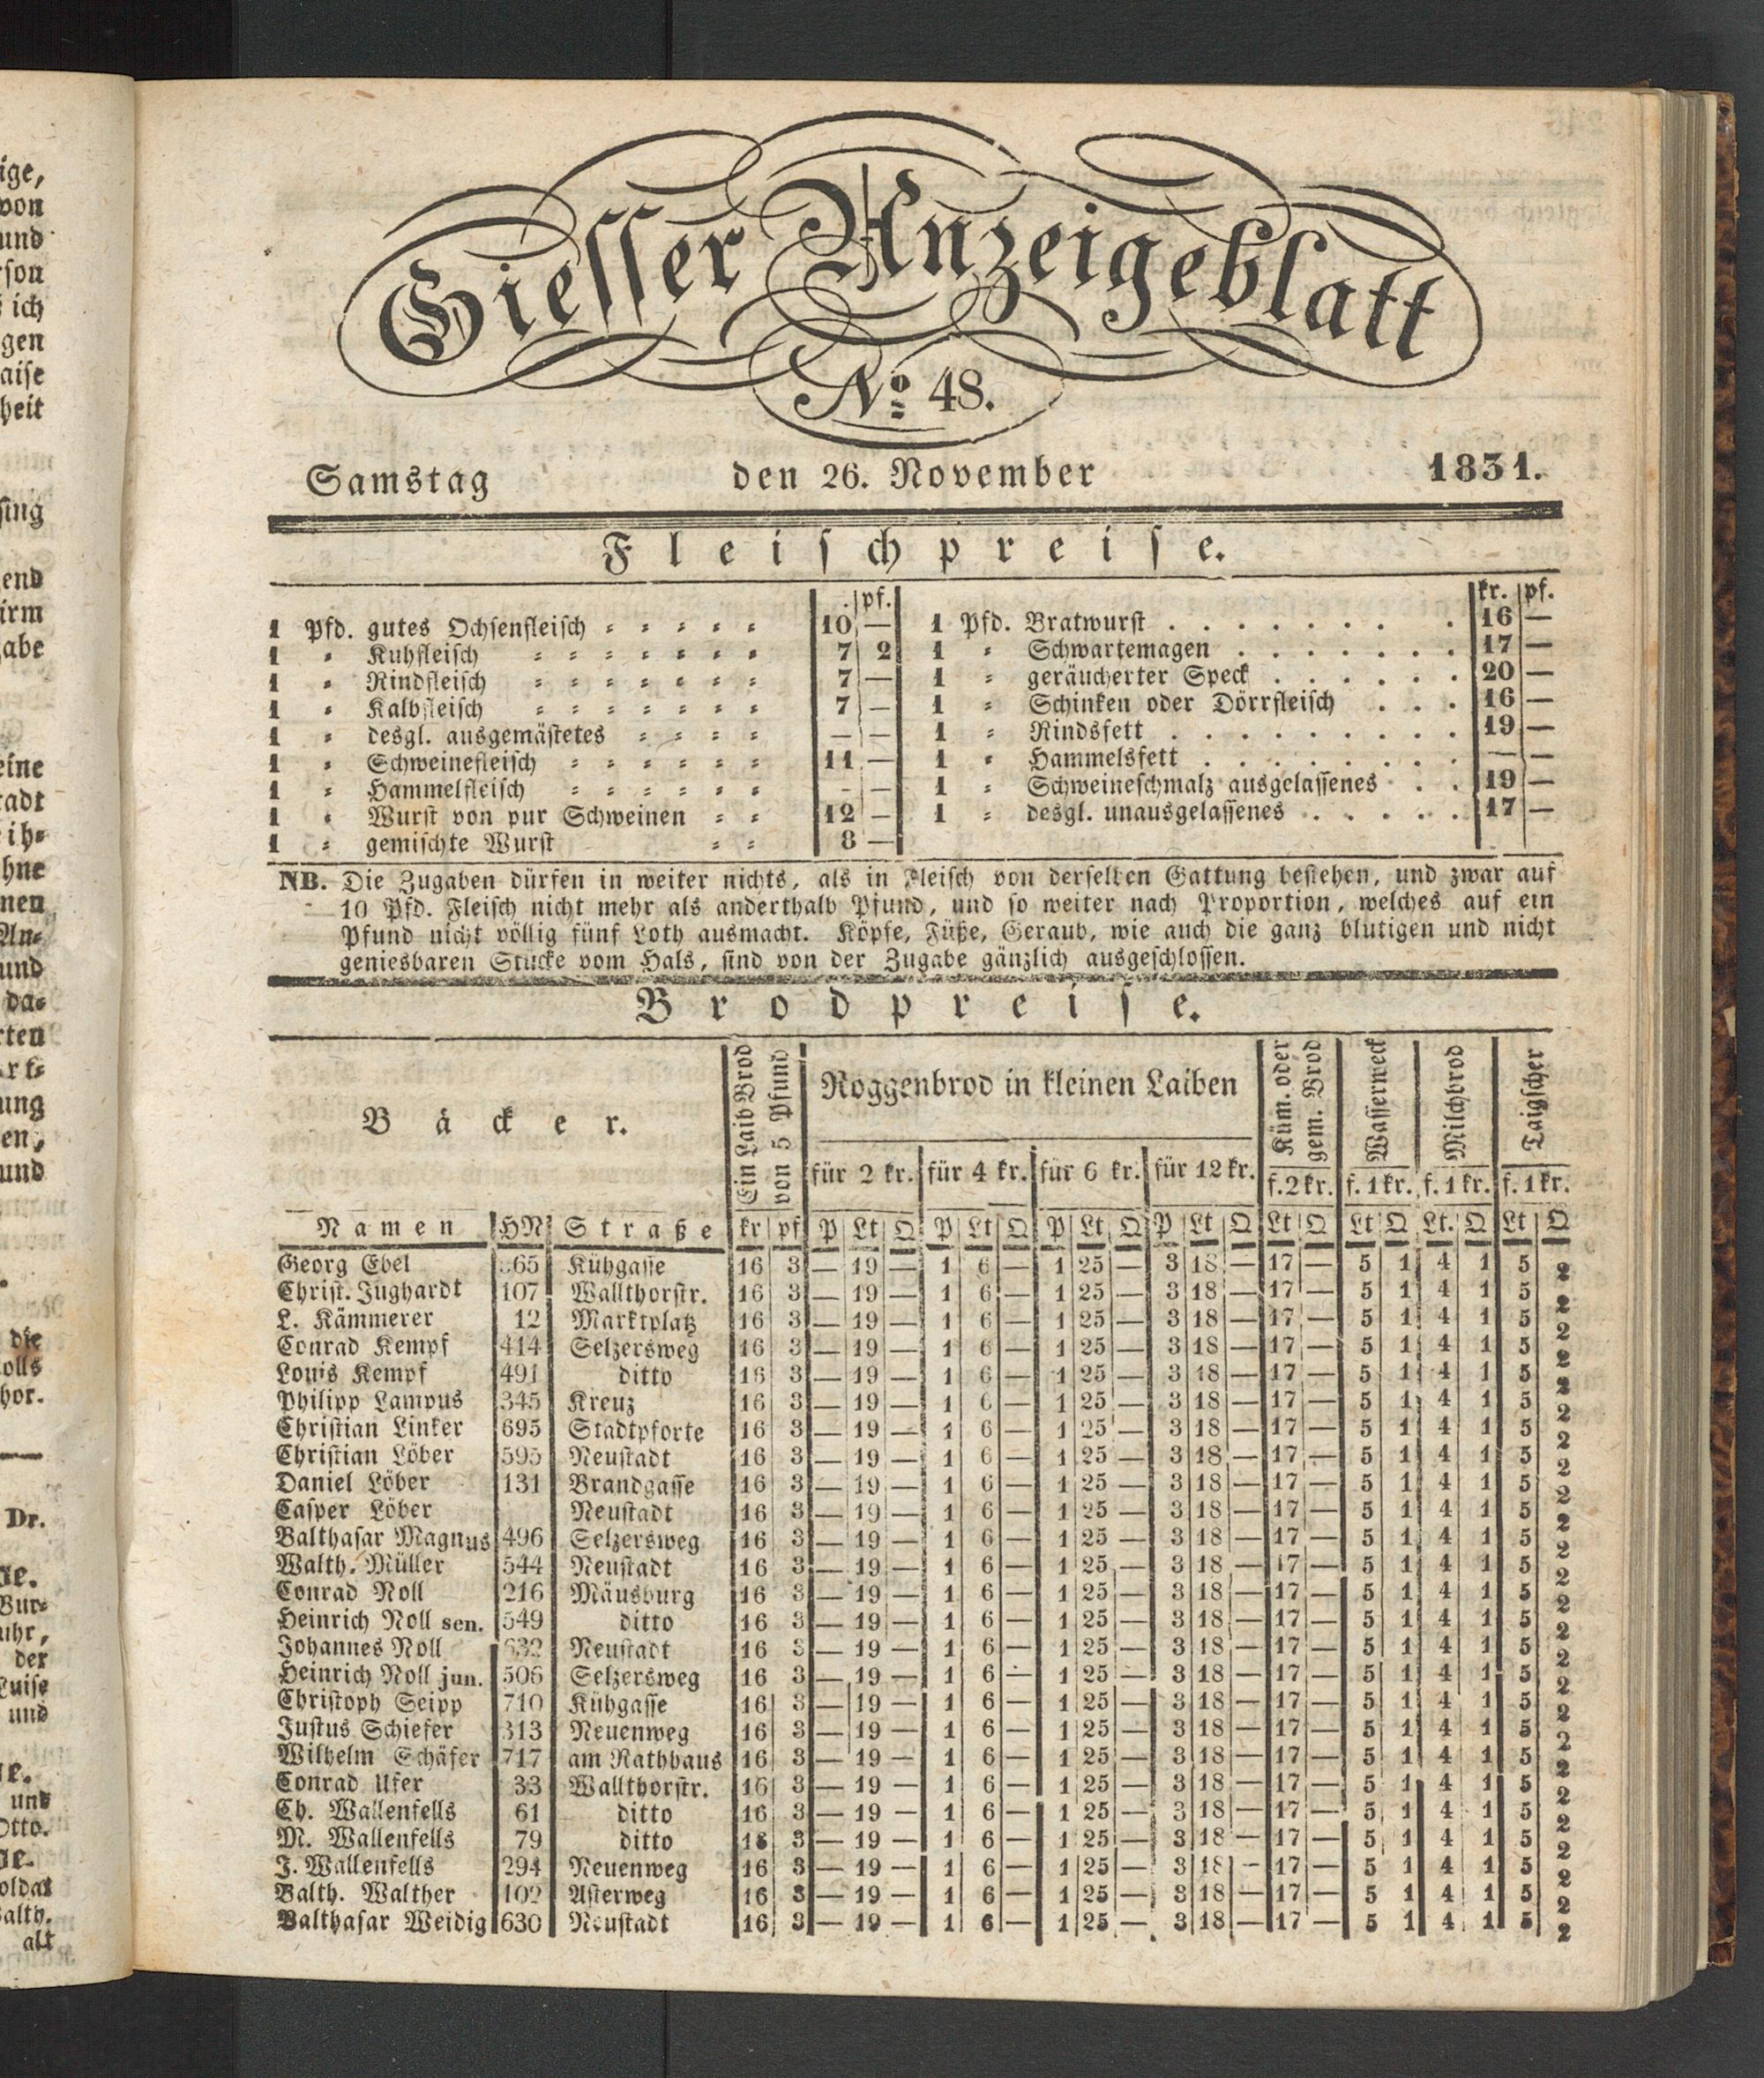 Giesser Anzeigeblatt
No. 48.
Samstag den 26. November 1831.
Fleischpreise.
pf. kr. pf.
1 Pfd. gutes Ochsenfleisch 10 —
1 " Kuhfleisch 7 2
1 " Rindfleisch 7 —
1 " Kalbfleisch 7 —
1 " desgl. ausgemästetes — —
1 " Schweinefleisch 11 —
1 " Hammelfleisch — —
1 " Wurst von pur Schweinen 12 —
1 " gemischte Wurst 8 —
1 Pfd. Bratwurst 16 —
1 " Schwartemagen 17 —
1 " geräucherter Speck 20 —
1 " Schinken oder Dörrfleisch 16 —
1 " Rindsfett 19 —
1 " Hammelsfett — —
1 " Schweineschmalz ausgelassenes 19 —
1 " desgl. unausgelassenes 17 —
NB. Die Zugaben dürfen in weiter nichts, als in Fleisch von derselben Gattung bestehen, und zwar auf
10 Pfd. Fleisch nicht mehr als anderthalb Pfund, und so weiter nach Proportion, welches auf ein
Pfund nicht völlig fünf Loth ausmacht. Köpfe, Füße, Geraub, wie auch die ganz blutigen und nicht
geniesbaren Stücke vom Hals, sind von der Zugabe gänzlich ausgeschlossen.
Brodpreise.
Bäcker.
Ein Laib Brod von 5 Pfund
Roggenbrod in kleinen Laiben
Küm. oder gem. Brod
Wasserweck
Milchbrod
Taigscher
für 2 kr. für 4 kr. für 6 kr. für 12 kr. f. 2 kr. f. 1 kr. f. 1 kr. f. 1 kr.
Namen HN Straße kr pf P Lt Q P Lt Q P Lt Q P Lt Q Lt Q Lt Q Lt. Q Lt Q
Georg Ebel 65 Kühgasse 16 3 — 19 — 1 6 — 1 25 — 3 18 — 17 — 5 1 4 1 5 2
Christ. Jughardt 107 Wallthorstr. 16 3 — 19 — 1 6 — 1 25 — 3 18 — 17 — 5 1 4 1 5 2
L. Kämmerer 12 Marktplatz 16 3 — 19 — 1 6 — 1 25 — 3 18 — 17 — 5 1 4 1 5 2
Conrad Kempf 414 Selzersweg 16 3 — 19 — 1 6 — 1 25 — 3 18 — 17 — 5 1 4 1 5 2
Louis Kempf 491 ditto 16 3 — 19 — 1 6 — 1 25 — 3 18 — 17 — 5 1 4 1 5 2
Philipp Lampus 345 Kreuz 16 3 — 19 — 1 6 — 1 25 — 3 18 — 17 — 5 1 4 1 5 2
Christian Linker 695 Stadtpforte 16 3 — 19 — 1 6 — 1 25 — 3 18 — 17 — 5 1 4 1 5 2
Christian Löber 595 Neustadt 16 3 — 19 — 1 6 — 1 25 — 3 18 — 17 — 5 1 4 1 5 2
Daniel Löber 131 Brandgasse 16 3 — 19 — 1 6 — 1 25 — 3 18 — 17 — 5 1 4 1 5 2
Casper Löber Neustadt 16 3 — 19 — 1 6 — 1 25 — 3 18 — 17 — 5 1 4 1 5 2
Balthasar Magnus 496 Selzersweg 16 3 — 19 — 1 6 — 1 25 — 3 18 — 17 — 5 1 4 1 5 2
Walth. Müller 544 Neustadt 16 3 — 19 — 1 6 — 1 25 — 3 18 — 17 — 5 1 4 1 5 2
Conrad Noll 216 Mäusburg 16 3 — 19 — 1 6 — 1 25 — 3 18 — 17 — 5 1 4 1 5 2
Heinrich Noll sen. 549 ditto 16 3 — 19 — 1 6 — 1 25 — 3 18 — 17 — 5 1 4 1 5 2
Johannes Noll 632 Neustadt 16 3 — 19 — 1 6 — 1 25 — 3 18 — 17 — 5 1 4 1 5 2
Heinrich Noll jun. 506 Selzersweg 16 3 — 19 — 1 6 — 1 25 — 3 18 — 17 — 5 1 4 1 5 2
Christoph Seipp 710 Kühgasse 16 3 — 19 — 1 6 — 1 25 — 3 18 — 17 — 5 1 4 1 5 2
Justus Schiefer 313 Neuenweg 16 3 — 19 — 1 6 — 1 25 — 3 18 — 17 — 5 1 4 1 5 2
Wilhelm Schäfer 717 am Rathhaus 16 3 — 19 — 1 6 — 1 25 — 3 18 — 17 — 5 1 4 1 5 2
Conrad Ufer 33 Wallthorstr. 16 3 — 19 — 1 6 — 1 25 — 3 18 — 17 — 5 1 4 1 5 2
Ch. Wallenfells 61 ditto 16 3 — 19 — 1 6 — 1 25 — 3 18 — 17 — 5 1 4 1 5 2
M. Wallenfells 79 ditto 16 3 — 19 — 1 6 — 1 25 — 3 18 — 17 — 5 1 4 1 5 2
J. Wallenfells 294 Neuenweg 16 3 — 19 — 1 6 — 1 25 — 3 18 — 17 — 5 1 4 1 5 2
Balth. Walther 102 Asterweg 16 3 — 19 — 1 6 — 1 25 — 3 18 — 17 — 5 1 4 1 5 2
Balthasar Weidig 630 Neustadt 16 3 — 19 — 1 6 — 1 25 — 3 18 — 17 — 5 1 4 1 5 2